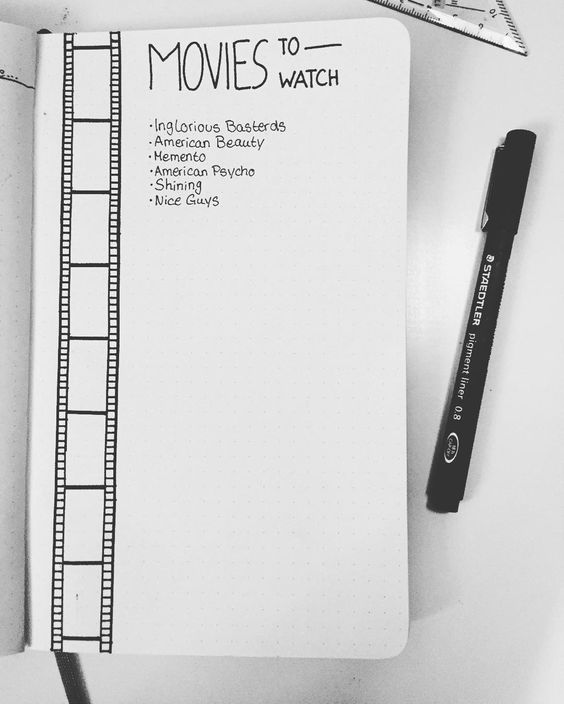 MOVIES TO —
WATCH
·Inglorious Basterds
·American Beauty
·Memento
·American Psycho
·Shining
·Nice Guys
STAEDTLER
pigment liner 0.8